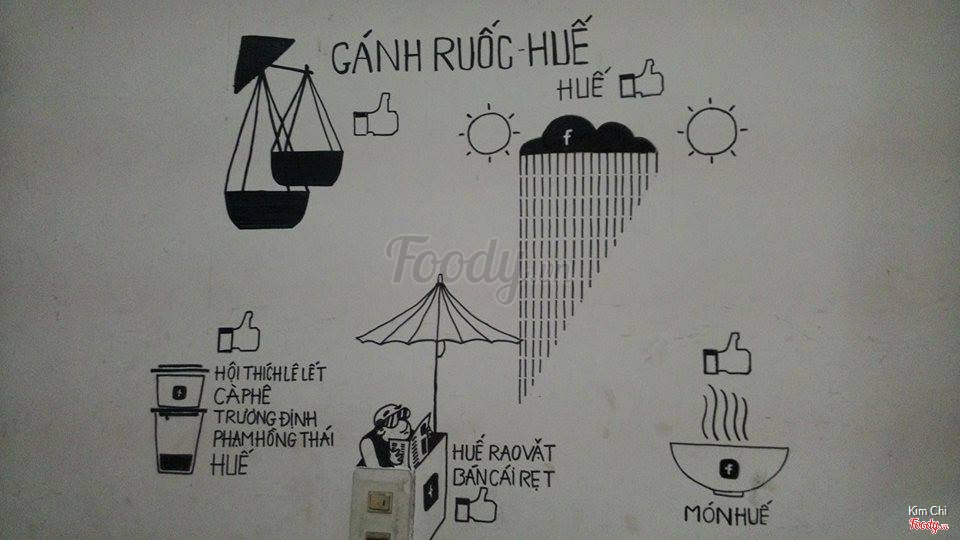 GÁNH RUỐC-HUẾ
HUẾ
f
Foody.vn
HỘI THÍCH LÊ LẾT
CÀ PHÊ
TRƯƠNG ĐỊNH
PHẠM HỒNG THÁI
HUẾ
f
HUẾ RAO VẶT
BÁN CÁI RẸT
f
f
MÓN HUẾ
Kim Chi
Foody.vn